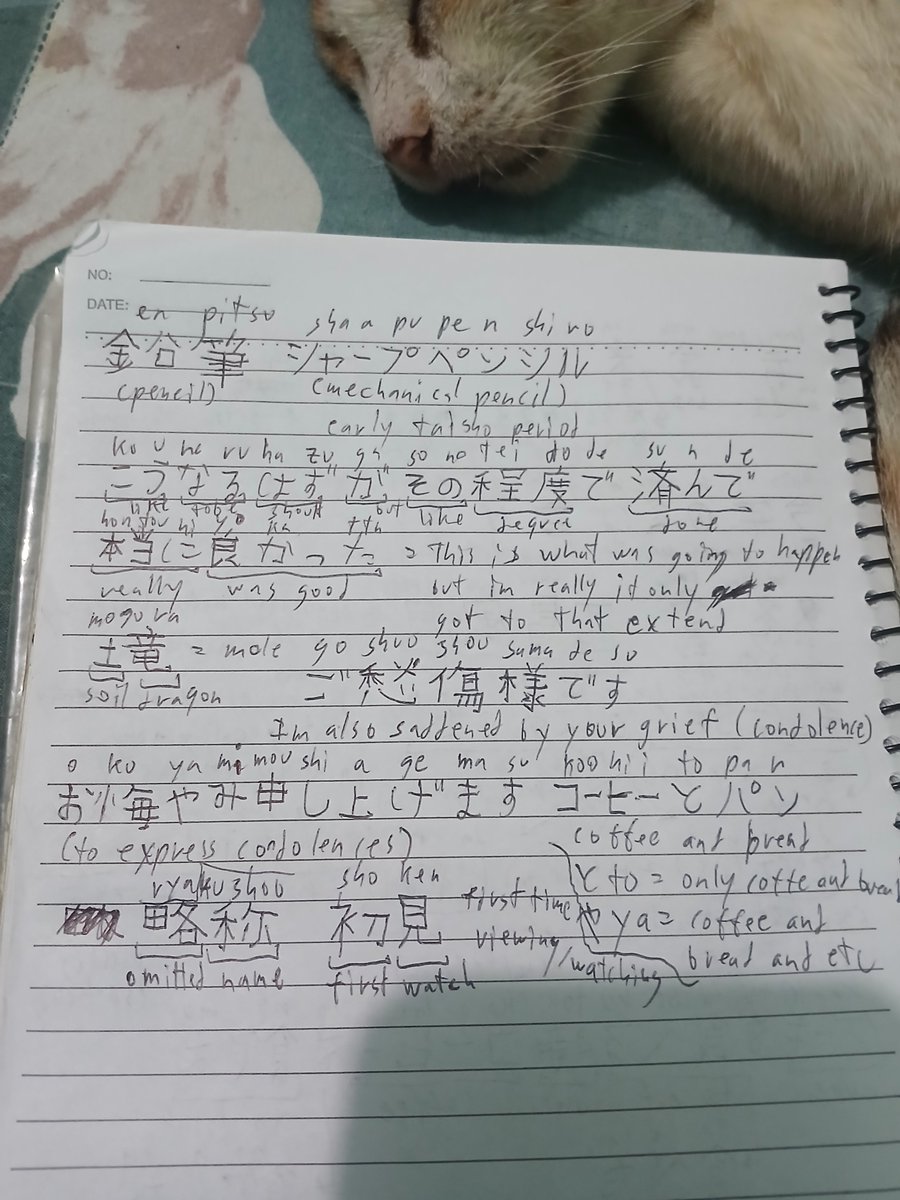 NO:
DATE:
en pitsu shaa pu pe n shi ru
鉛筆 シャープペンシル
(pencil) (mechanical pencil)
early taisho period
ko u na ru ha zu ga so no tei do de su n de
こうなるはずが その程度で 済んで
like tobe should but like degree done
hon tou ni yo ka tta
本当に良かった = This is what was going to happen
really was good but im really it only
mogura got to that extend
土竜 = mole go shuu shou sama de su
soil dragon ご愁傷様です
Im also saddened by your grief (condolence)
o ku ya mi mou shi a ge ma su koo hii to pa n
お悔やみ申し上げます コーヒーとパン
(to express condolences) coffee and bread
ryaku shou sho ken と to = only coffe and bread
略称 初見 first time や ya = coffee and
viewing bread and etc
omitted name first watch //watching